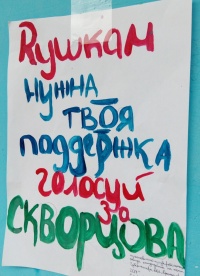 Кушкам
нужна
твоя
поддержка
голосуй
за
СКВОРЦОВА